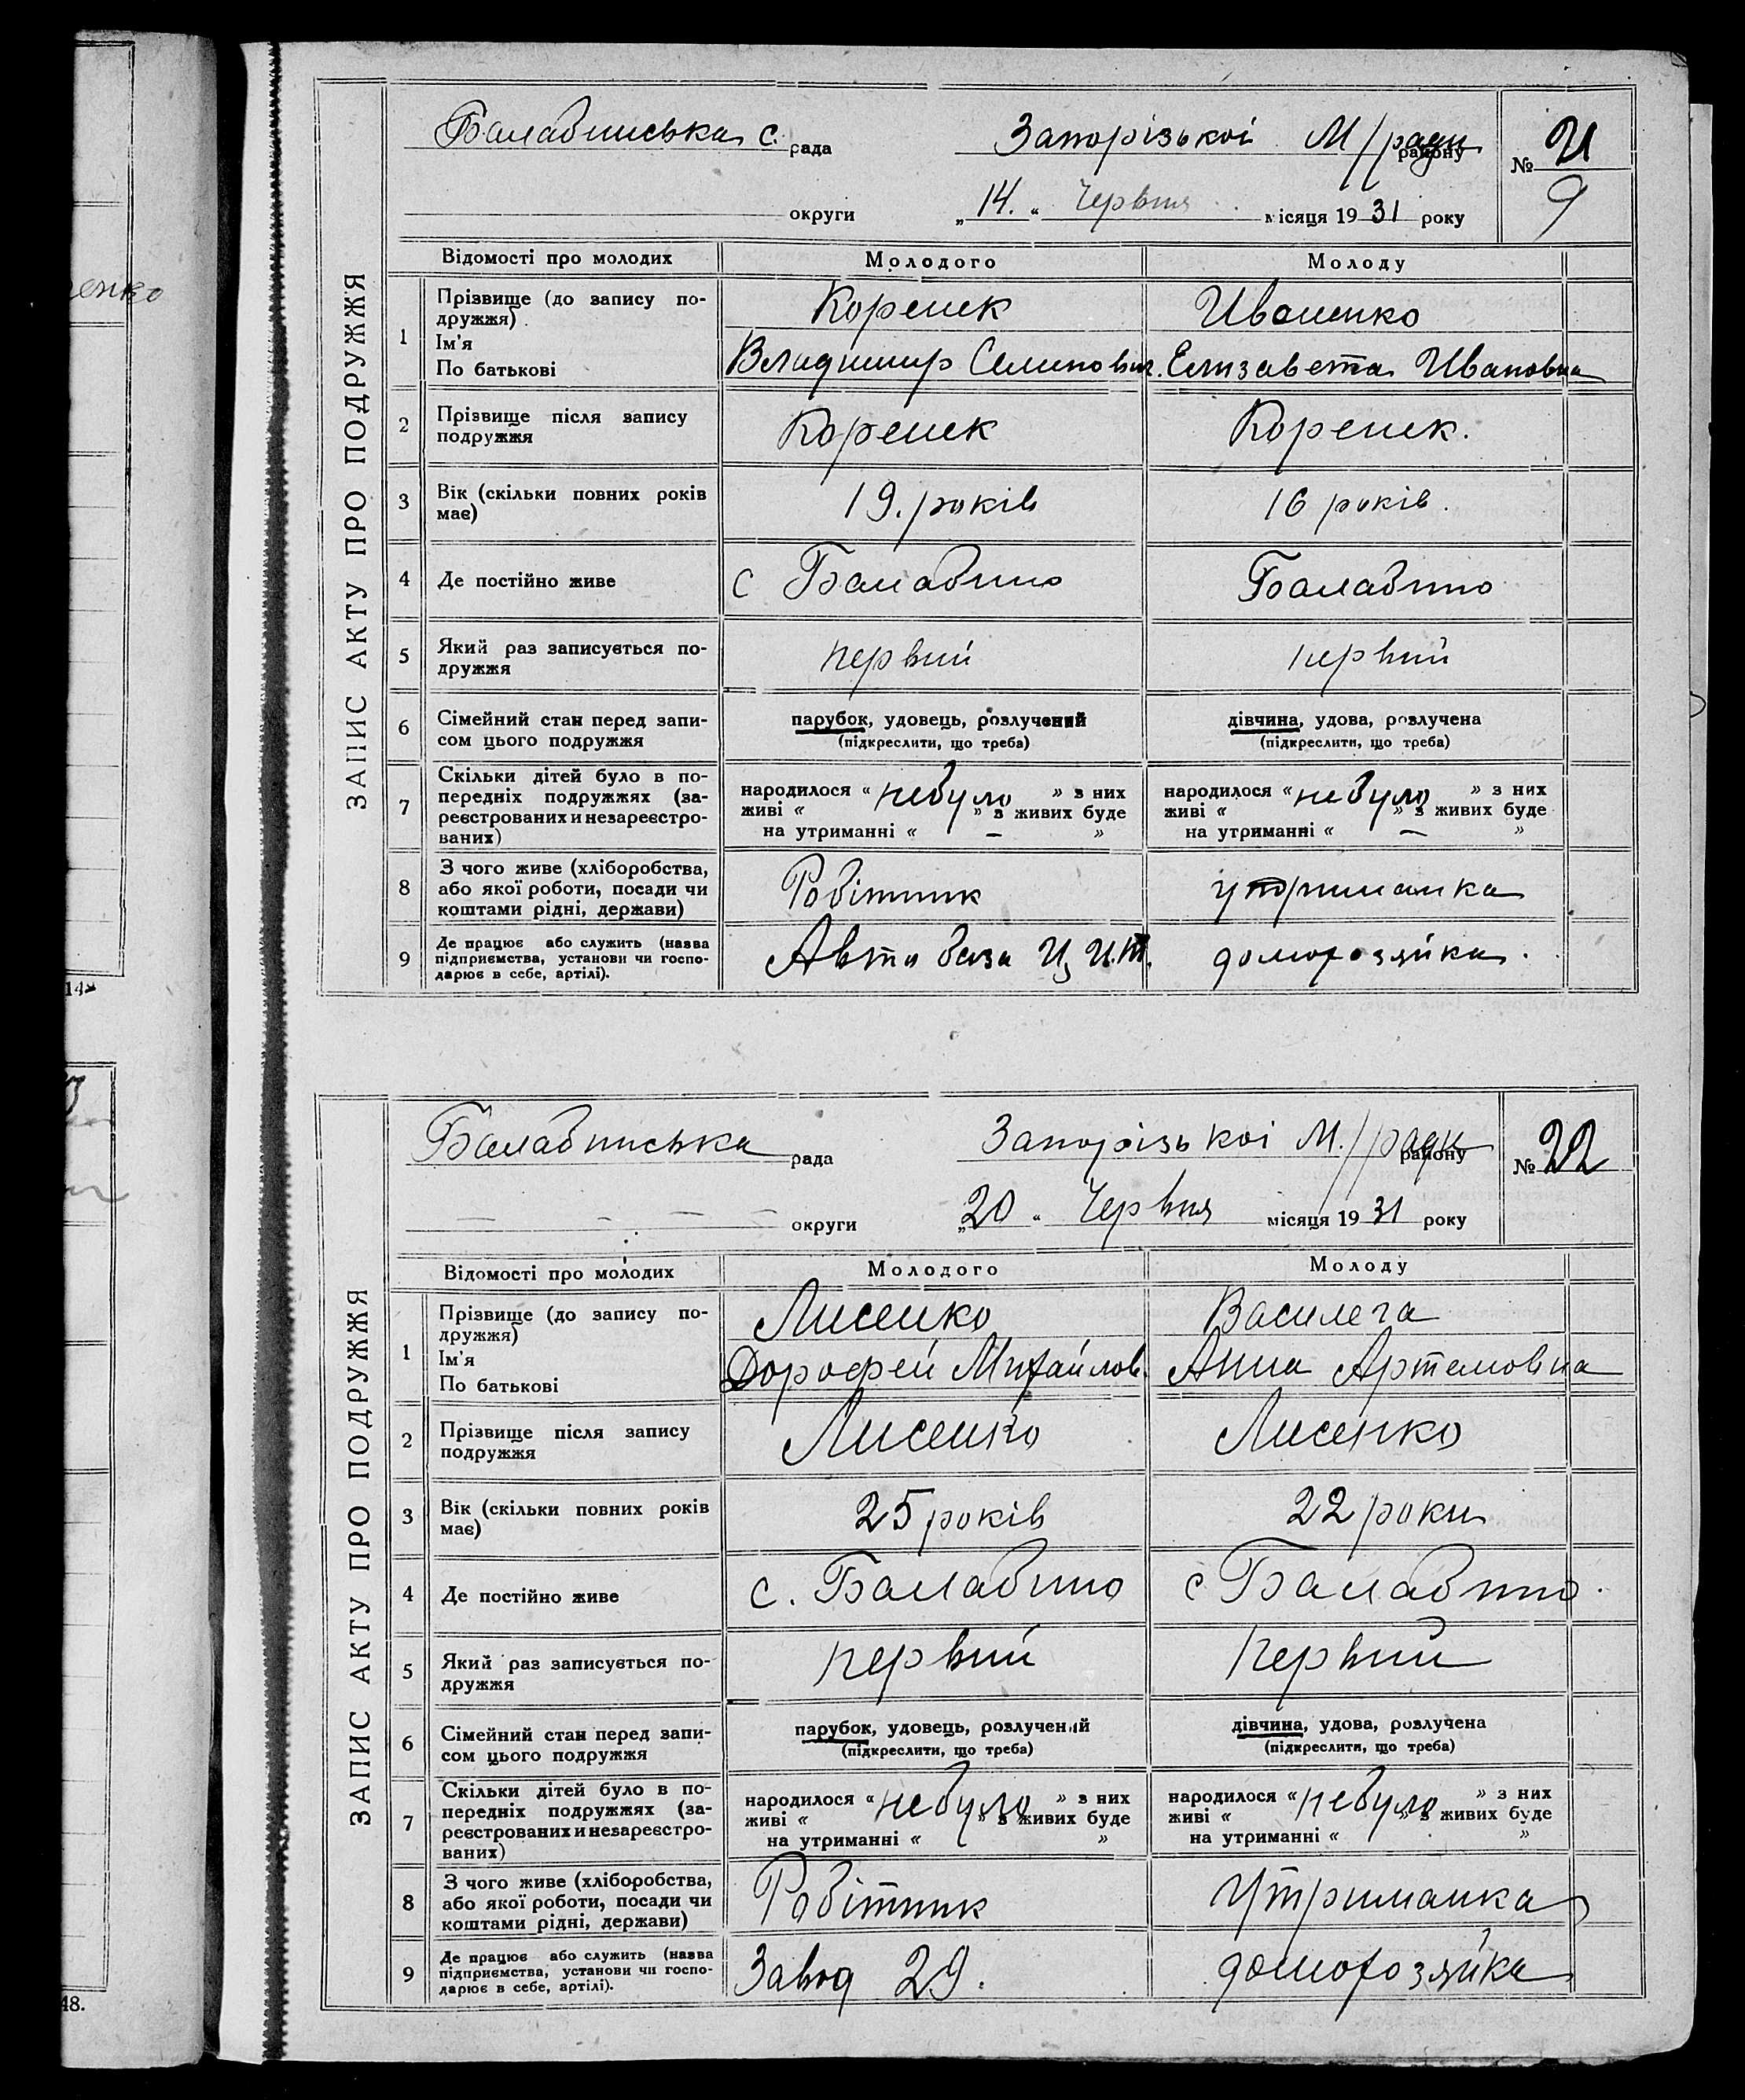 енко
14
48.
ЗАПИС АКТУ ПРО ПОДРУЖЖЯ
Балабинська с. рада Запорізькоі М/ради району № 21
округи „14.“ Червня місяця 1931 року 9
Відомості про молодих Молодого Молоду
1 Прізвище (до запису по-
дружжя) Коренек Иваненко
Ім'я
По батькові Владимир Семинович. Елизавета Ивановна
2 Прізвище після запису
подружжя Коренек Коренек.
3 Вік (скільки повних років
має) 19. років 16 років.
4 Де постійно живе с Балабино Балабино
5 Який раз записується по-
дружжя первий первий
6 Сімейний стан перед запи-
сом цього подружжя
парубок, удовець, розлучений
(підкреслити, що треба)
дівчина, удова, розлучена
(підкреслити, що треба)
7 Скільки дітей було в по-
передніх подружжях (за-
реєстрованих и незареєстро-
ваних)
народилося « небуло » з них
живі « » з живих буде
на утриманні « — »
народилося « небуло » з них
живі « » з живих буде
на утриманні « — »
8 З чого живе (хліборобства,
або якої роботи, посади чи
коштами рідні, держави) Робітник утриманка
9 Де працює або служить (назва
підприємства, установи чи госпо-
дарює в себе, артілі). Авто база домохозяйка.
ЗАПИС АКТУ ПРО ПОДРУЖЖЯ
Балабинська рада Запорізькоі М./ради району № 22
— — — — округи „20“ Червня місяця 1931 року
Відомості про молодих Молодого Молоду
1 Прізвище (до запису по-
дружжя) Лисенко Василега
Ім'я
По батькові Дорофей Михайлов. Анна Артемовна
2 Прізвище після запису
подружжя Лисенко Лисенко
3 Вік (скільки повних років
має) 25 років 22 роки
4 Де постійно живе с. Балабино с Балабино.
5 Який раз записується по-
дружжя первий Первий
6 Сімейний стан перед запи-
сом цього подружжя
парубок, удовець, розлучений
(підкреслити, що треба)
дівчина, удова, розлучена
(підкреслити, що треба)
7 Скільки дітей було в по-
передніх подружжях (за-
реєстрованих и незареєстро-
ваних)
народилося « небуло » з них
живі « » з живих буде
на утриманні « »
народилося « небуло » з них
живі « » з живих буде
на утриманні « »
8 З чого живе (хліборобства,
або якої роботи, посади чи
коштами рідні, держави) Робітник Утриманка
9 Де працює або служить (назва
підприємства, установи чи госпо-
дарює в себе, артілі). Завод 29. домохозяйка